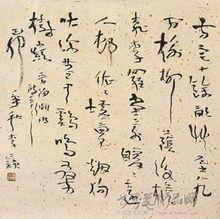 方宅十餘畝草屋八九
間榆柳蔭後檐
桃李羅堂前曖曖遠
人村依依墟里煙狗
吠深巷中雞鳴桑
樹巔 陶淵明
年秋